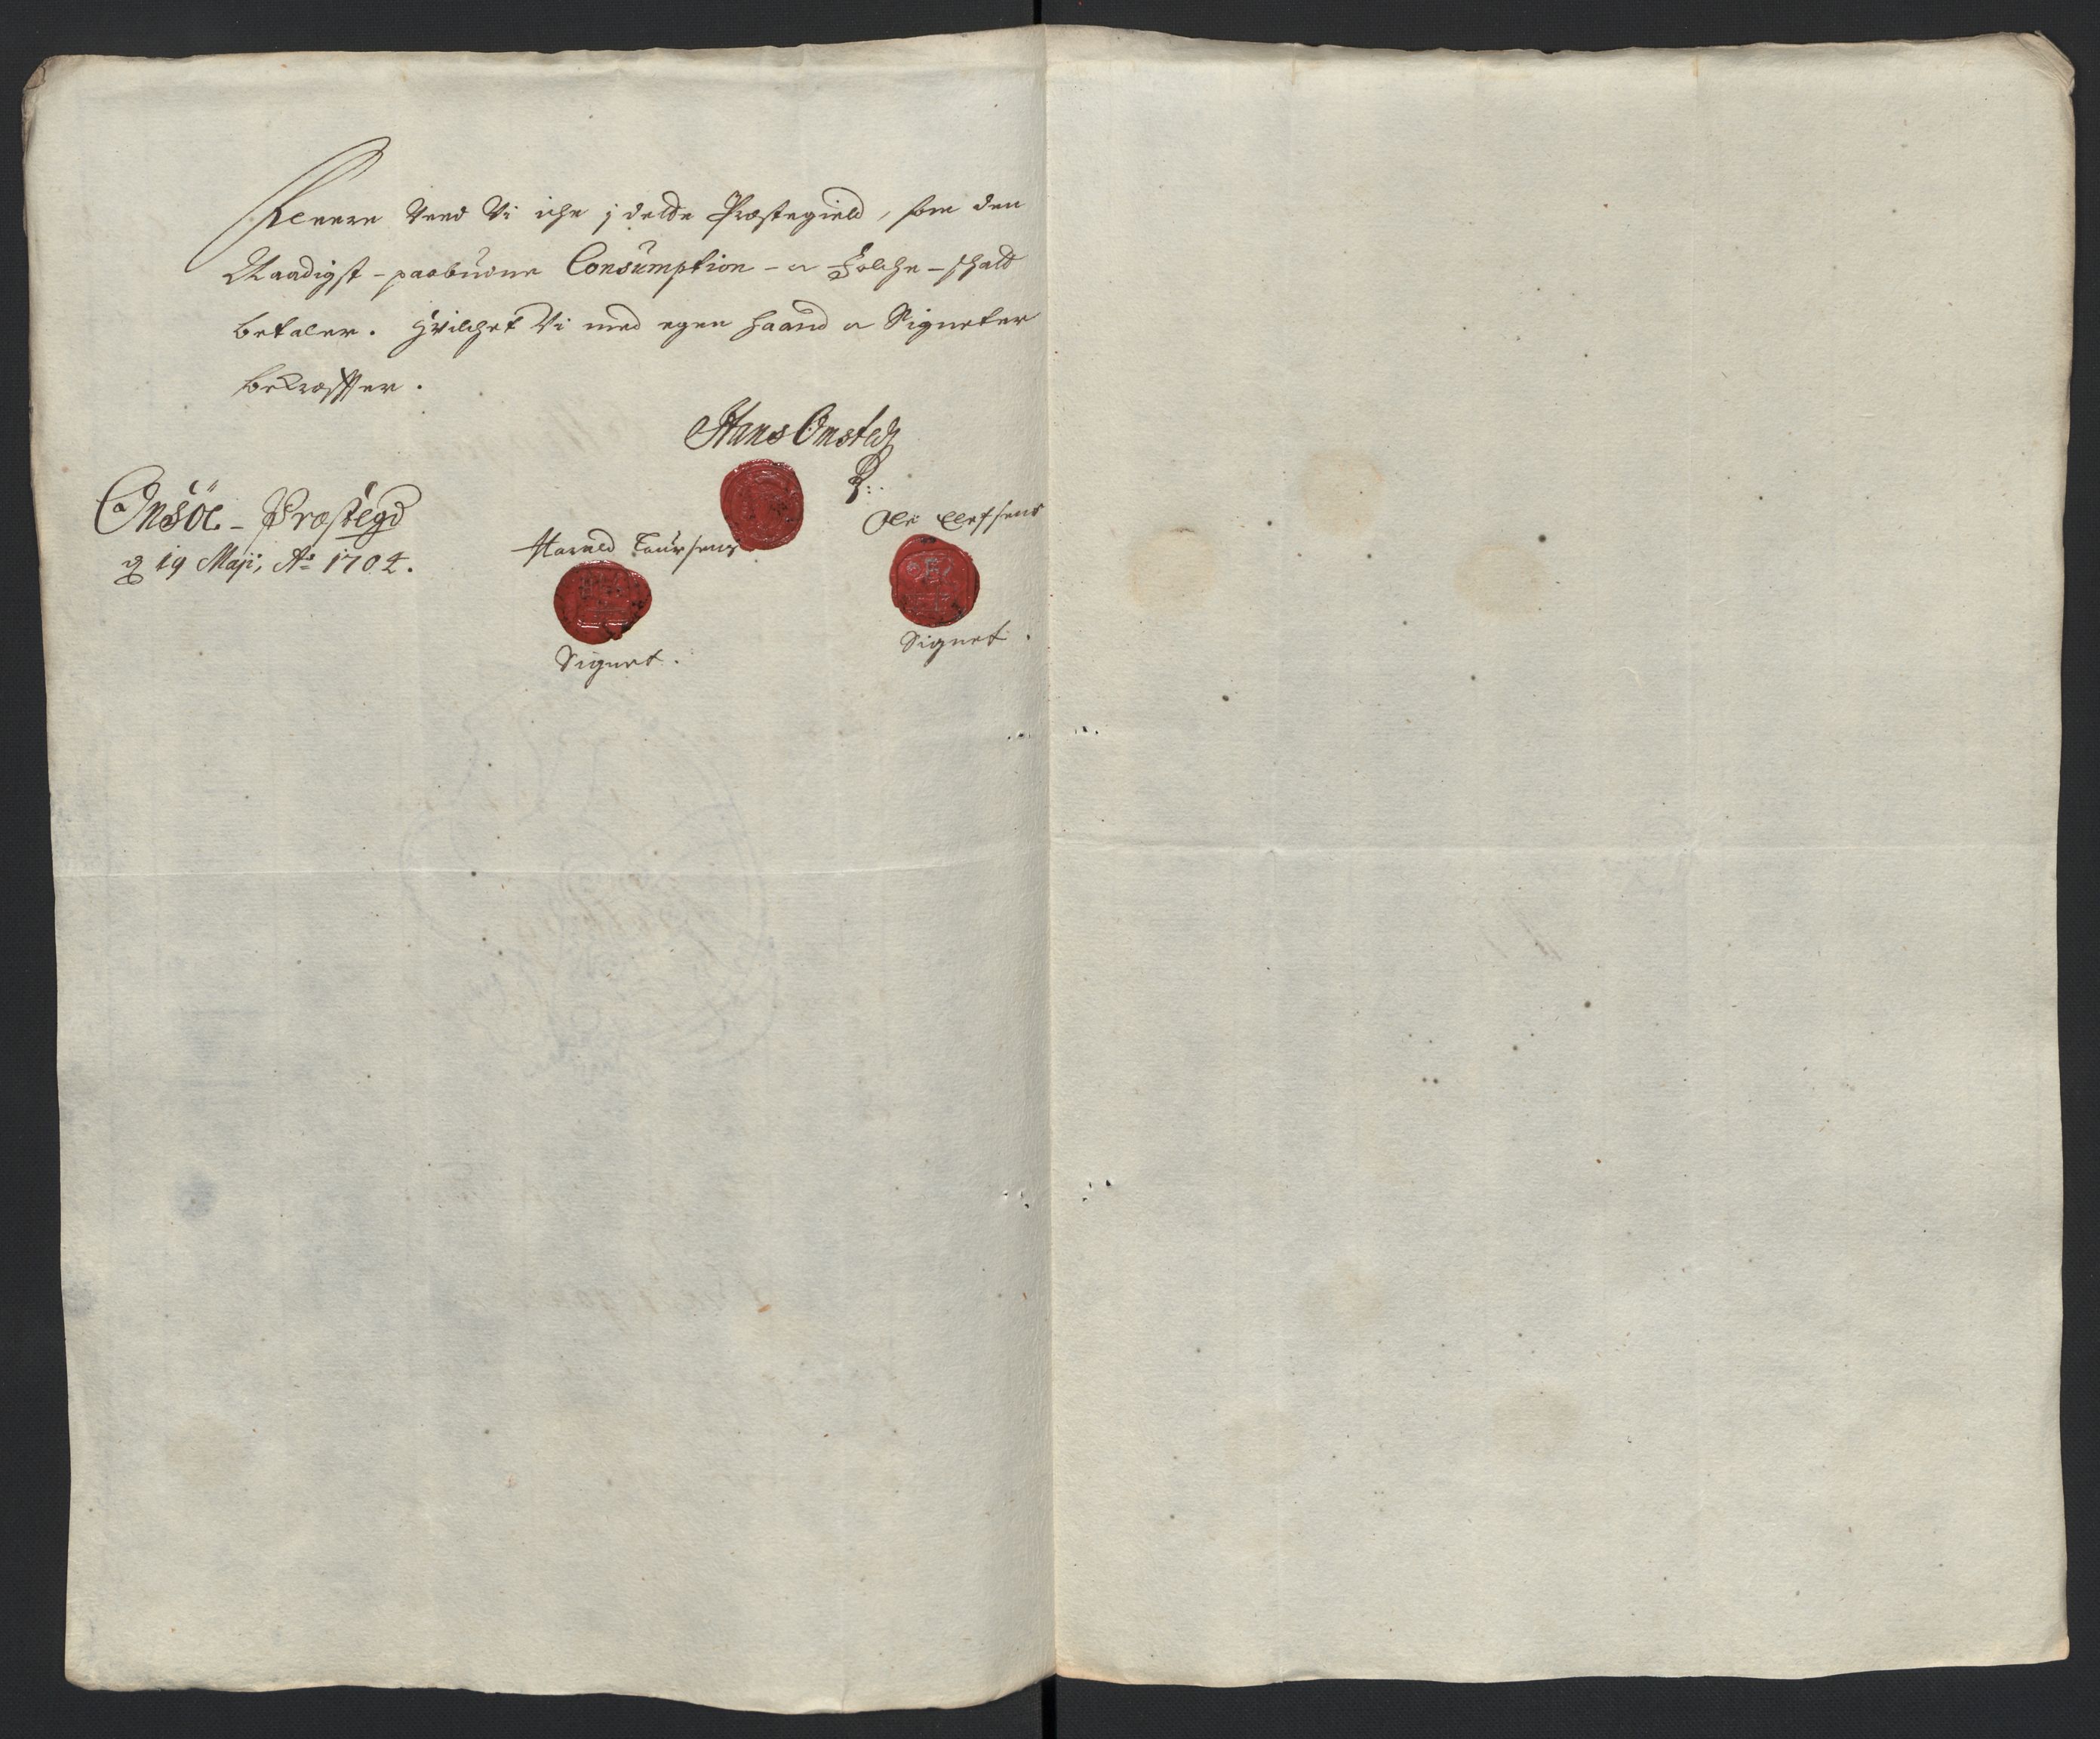 Fleere Veed Vi iche j dette Præstegield, som den
Naadigst-paabudne Consumption - og Folche-schatt
betaler. Hvilchet Vi med egen Haand og Signeter
bekræffter.
Hans Onstedt
Onsöe-Præstegd
d 19 Maji, Ao 1704.
Harald Laursens
Signet.
Ole Olefsens
Signet.